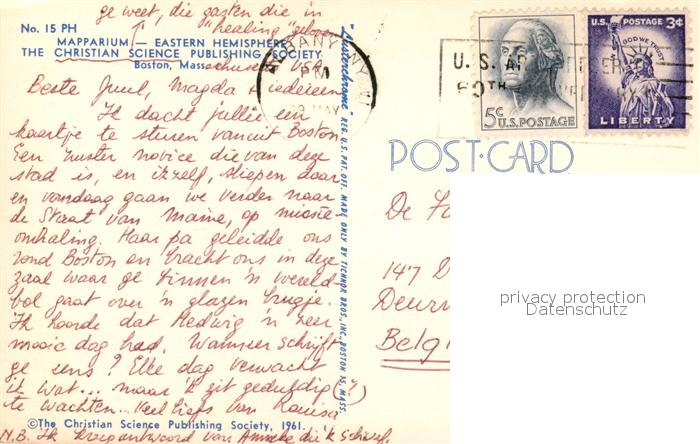 ge weet, die gasten die in
"healing" geloven
No. 15 PH
MAPPARIUM — EASTERN HEMISPHERE
THE CHRISTIAN SCIENCE PUBLISHING SOCIETY
Boston, Massachusetts USA
Beste Juul, Magda & iedereen
Ik dacht jullie een
kaartje te sturen vanuit Boston
Een zuster novice die van deze
stad is, en ikzelf, sliepen daar
en vandaag gaan we verder naar
de Staat van Maine, op missie
omhaling. Haar pa geleidde ons
rond Boston en bracht ons in deze
zaal waar ge binnen 'n wereld-
bol gaat over 'n glazen brugje.
Ik hoorde dat Hedwig 'n zeer
mooie dag had. Wanneer schrijft
ge eens? Elke dag verwacht
ik wat... maar 'k zit geduldig (?)
te wachten.. Veel liefs van Louisa
©The Christian Science Publishing Society, 1961.
N.B. Ik kreeg antwoord van Anneke die 'k schreef.
"Lusterchrome" REG. U.S. PAT. OFF. MADE ONLY BY TICHNOR BROS., INC., BOSTON 15, MASS.
ALBANY, N.Y.
PM
MAY
U.S. A
60TH
5¢ U.S. POSTAGE
U.S. POSTAGE 3¢
IN GOD WE TRUST
LIBERTY
POST-CARD
De Fa
147 D
Deurn
Belg
privacy protection
Datenschutz